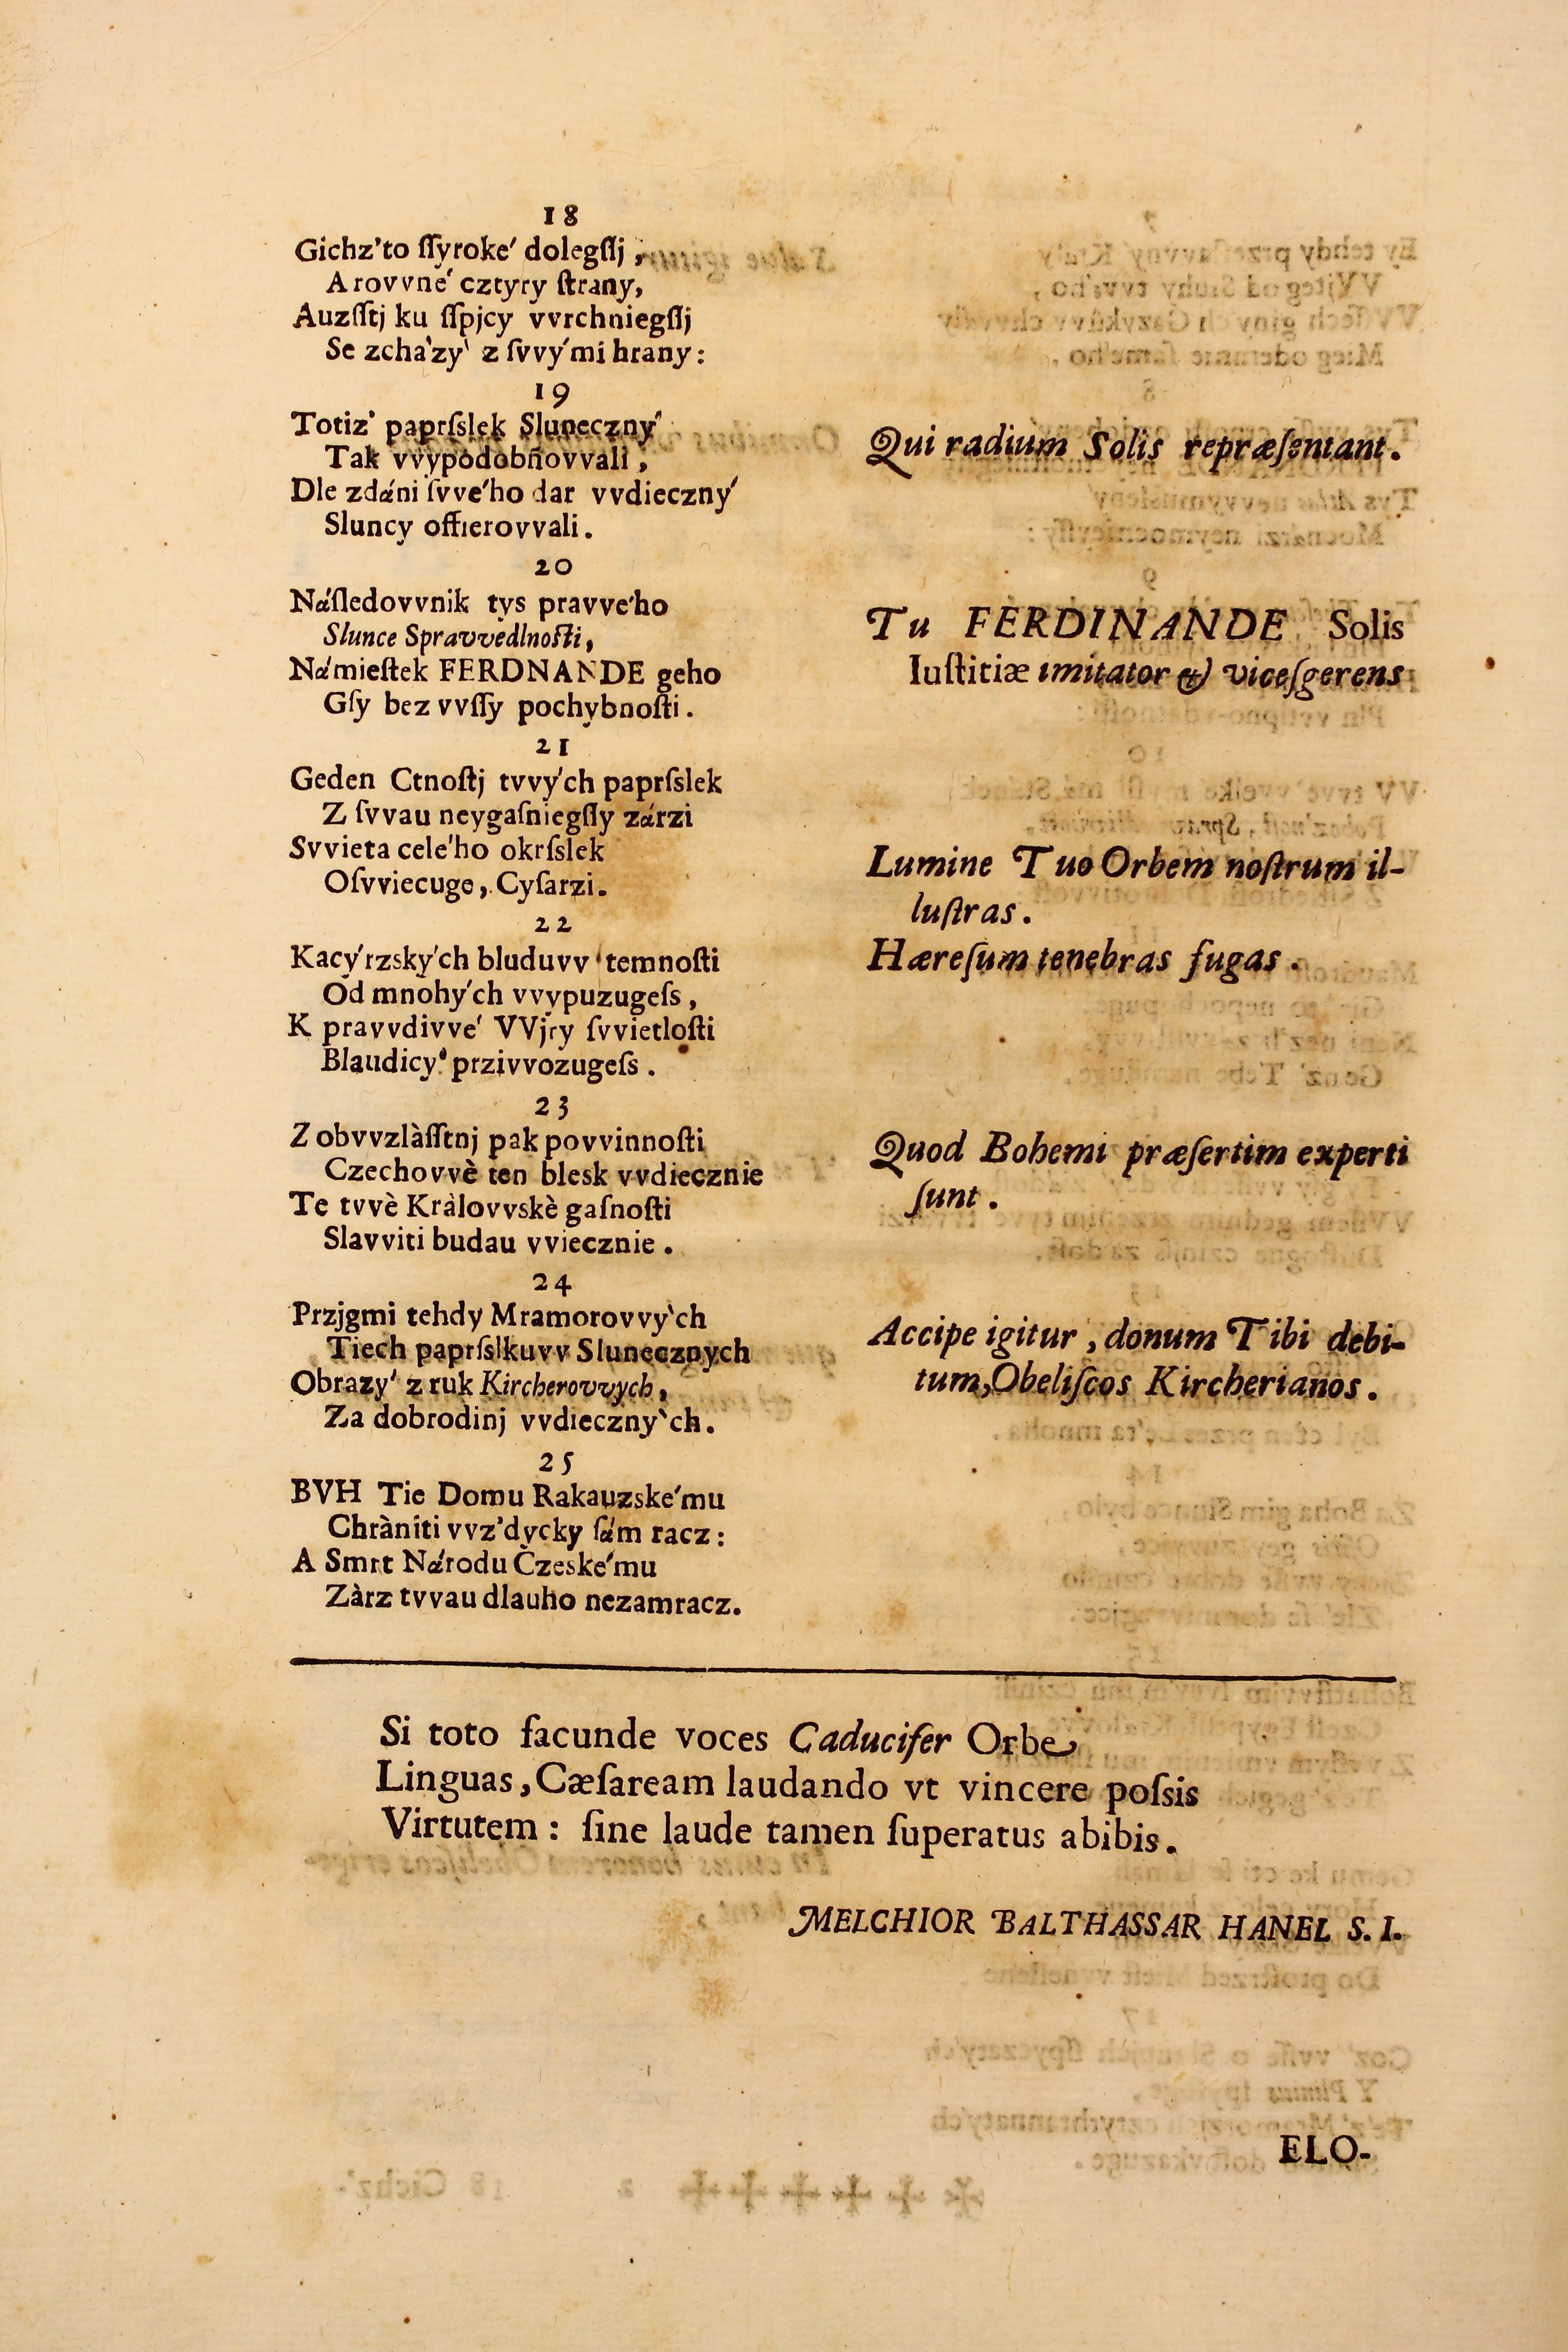 18
Gichz’to ſſyroke′ dolegſſj ,
A rovvne′ cztyry ſtrany,
Auzſſtj ku ſſpjcy vvrchniegſſj
Se zcha‵zy‵ z ſvvy′mi hrany :
19
Totiz’ paprſslek Sluneczny′
Tak vvypodobňovvali ,
Dle zdáni ſvve′ho dar vvdieczny′
Sluncy offierovvali .
Qui radium Solis repræſentant .
20
Náſledovvnik tys pravve′ho
Slunce Spravvedlnoſti,
Námieſtek FERDNANDE geho
Gſy bez vvſſy pochybnoſti .
Tu FERDINANDE Solis
Iuſtitiæ imitator & viceſgerens
21
Geden Ctnoſtj tvvy′ch paprſslek
Z ſvvau neygaſniegſſy zárzi
Svvieta cele′ho okrſslek
Oſvviecuge, Cyſarzi.
Lumine Tuo Orbem noſtrum il-
luſtras .
22
Kacy′rzsky′ch bluduvv temnoſti
Od mnohy′ch vvypuzugeſs ,
K pravvdivve′ VVjry ſvvietloſti
Blaudicy′ przivvozugeſs .
Hæreſum tenebras fugas .
23
Z obvvzlàſſtnj pak povvinnoſti
Czechovvè ten blesk vvdiecznie
Te tvvè Kràlovvskè gaſnoſti
Slavviti budau vviecznie .
Quod Bohemi præſertim experti
ſunt .
24
Przjgmi tehdy Mramorovvy‵ch
Tiech paprſslkuvv Slunecznych
Obrazy′ z ruk Kircherovvych ,
Za dobrodinj vvdieczny‵ch .
Accipe igitur , donum Tibi debi-
tum, Obeliſcos Kircherianos .
25
BVH Tie Domu Rakauzske′mu
Chràniti vvz’dycky ſám racz :
A Smrt Národu Čzeske′mu
Zàrz tvvau dlauho nezamracz.
Si toto facunde voces Caducifer Orbe
Linguas, Cæſaream laudando vt vincere poſsis
Virtutem : ſine laude tamen ſuperatus abibis .
MELCHIOR BALTHASSAR HANEL S. I.
ELO-